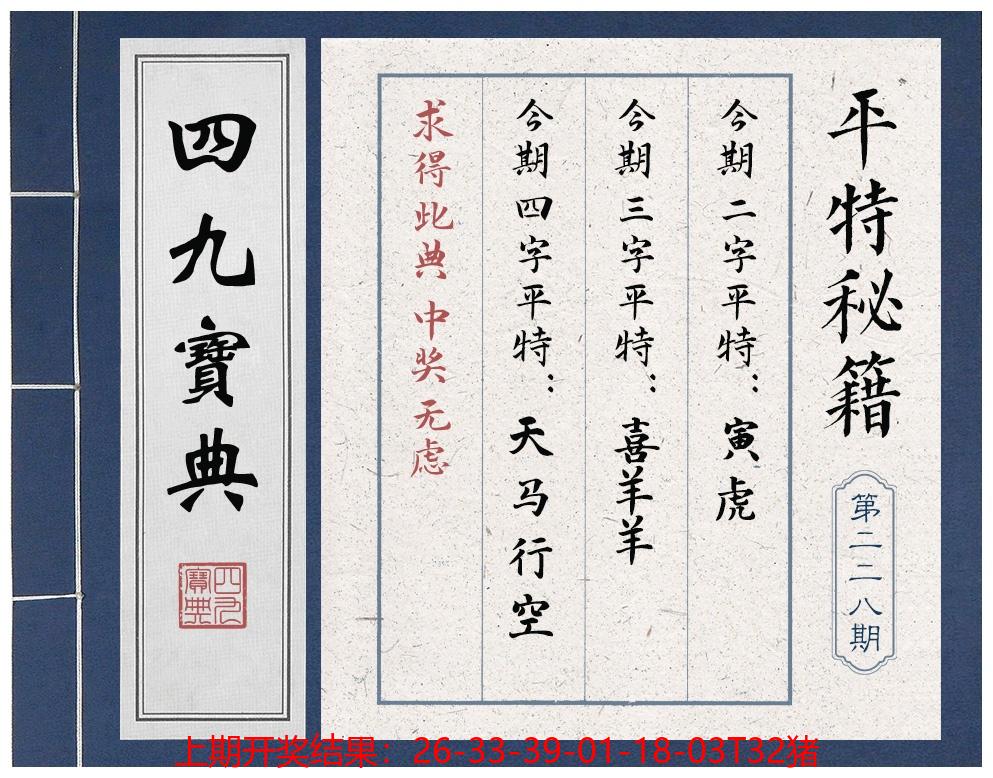 平特秘籍
第二二八期
今期二字平特：寅虎
今期三字平特：喜羊羊
今期四字平特：天马行空
求得此典 中奖无虑
四九寶典
四九寶典
上期开奖结果：26-33-39-01-18-03T32猪